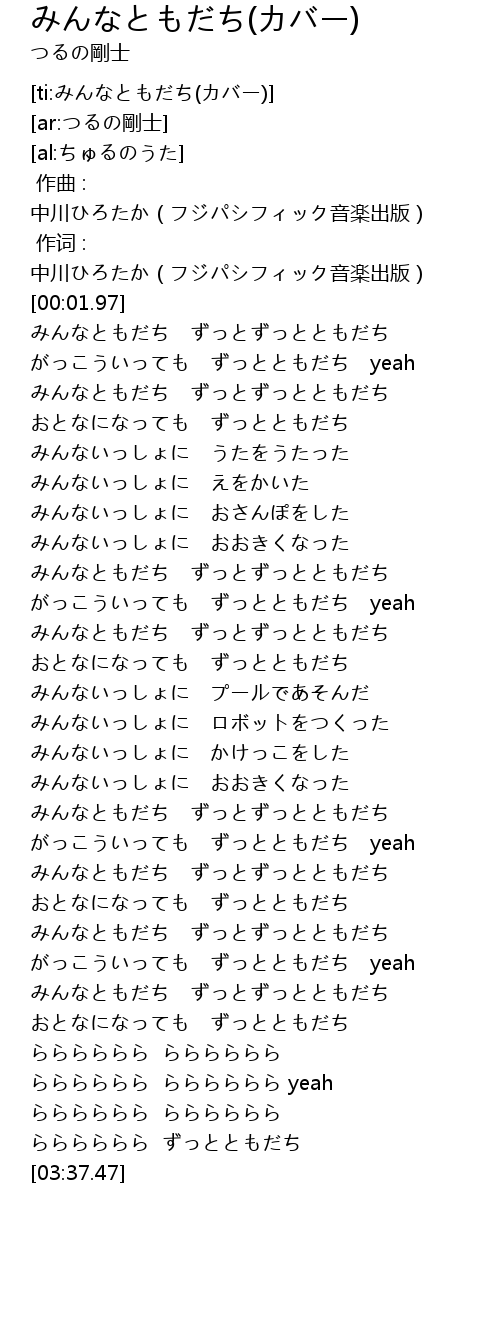 みんなともだち(カバー)
つるの剛士
[ti:みんなともだち(カバー)]
[ar:つるの剛士]
[al:ちゅるのうた]
作曲 :
中川ひろたか ( フジパシフィック音楽出版 )
作词 :
中川ひろたか ( フジパシフィック音楽出版 )
[00:01.97]
みんなともだち　ずっとずっとともだち
がっこういっても　ずっとともだち　yeah
みんなともだち　ずっとずっとともだち
おとなになっても　ずっとともだち
みんないっしょに　うたをうたった
みんないっしょに　えをかいた
みんないっしょに　おさんぽをした
みんないっしょに　おおきくなった
みんなともだち　ずっとずっとともだち
がっこういっても　ずっとともだち　yeah
みんなともだち　ずっとずっとともだち
おとなになっても　ずっとともだち
みんないっしょに　プールであそんだ
みんないっしょに　ロボットをつくった
みんないっしょに　かけっこをした
みんないっしょに　おおきくなった
みんなともだち　ずっとずっとともだち
がっこういっても　ずっとともだち　yeah
みんなともだち　ずっとずっとともだち
おとなになっても　ずっとともだち
みんなともだち　ずっとずっとともだち
がっこういっても　ずっとともだち　yeah
みんなともだち　ずっとずっとともだち
おとなになっても　ずっとともだち
らららららら  らららららら
らららららら  らららららら yeah
らららららら  らららららら
らららららら  ずっとともだち
[03:37.47]